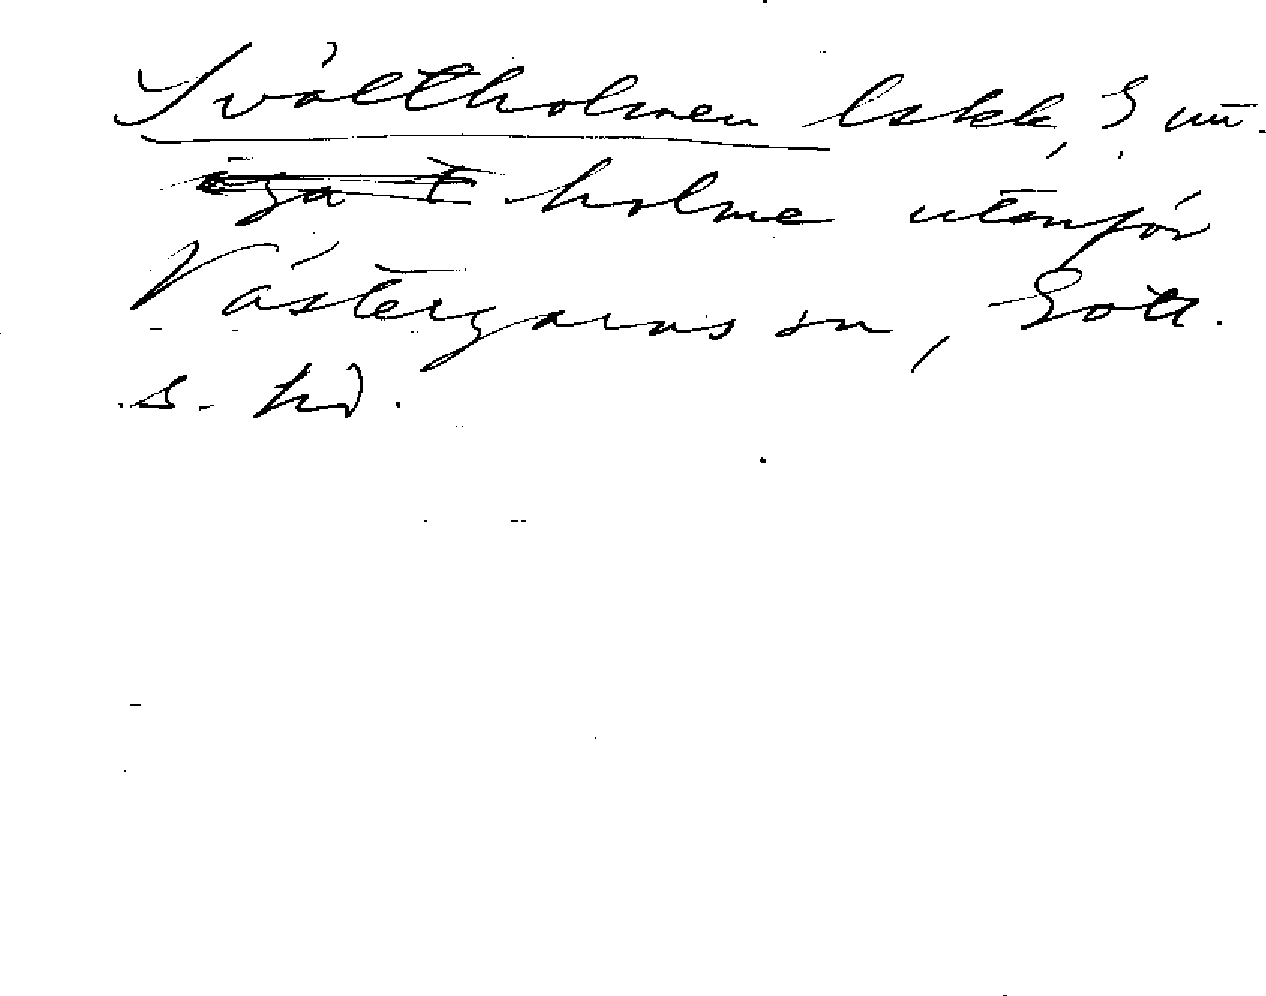 Svältholmen
holme utanför
Västergarns sn, Gotl.
s. hd.